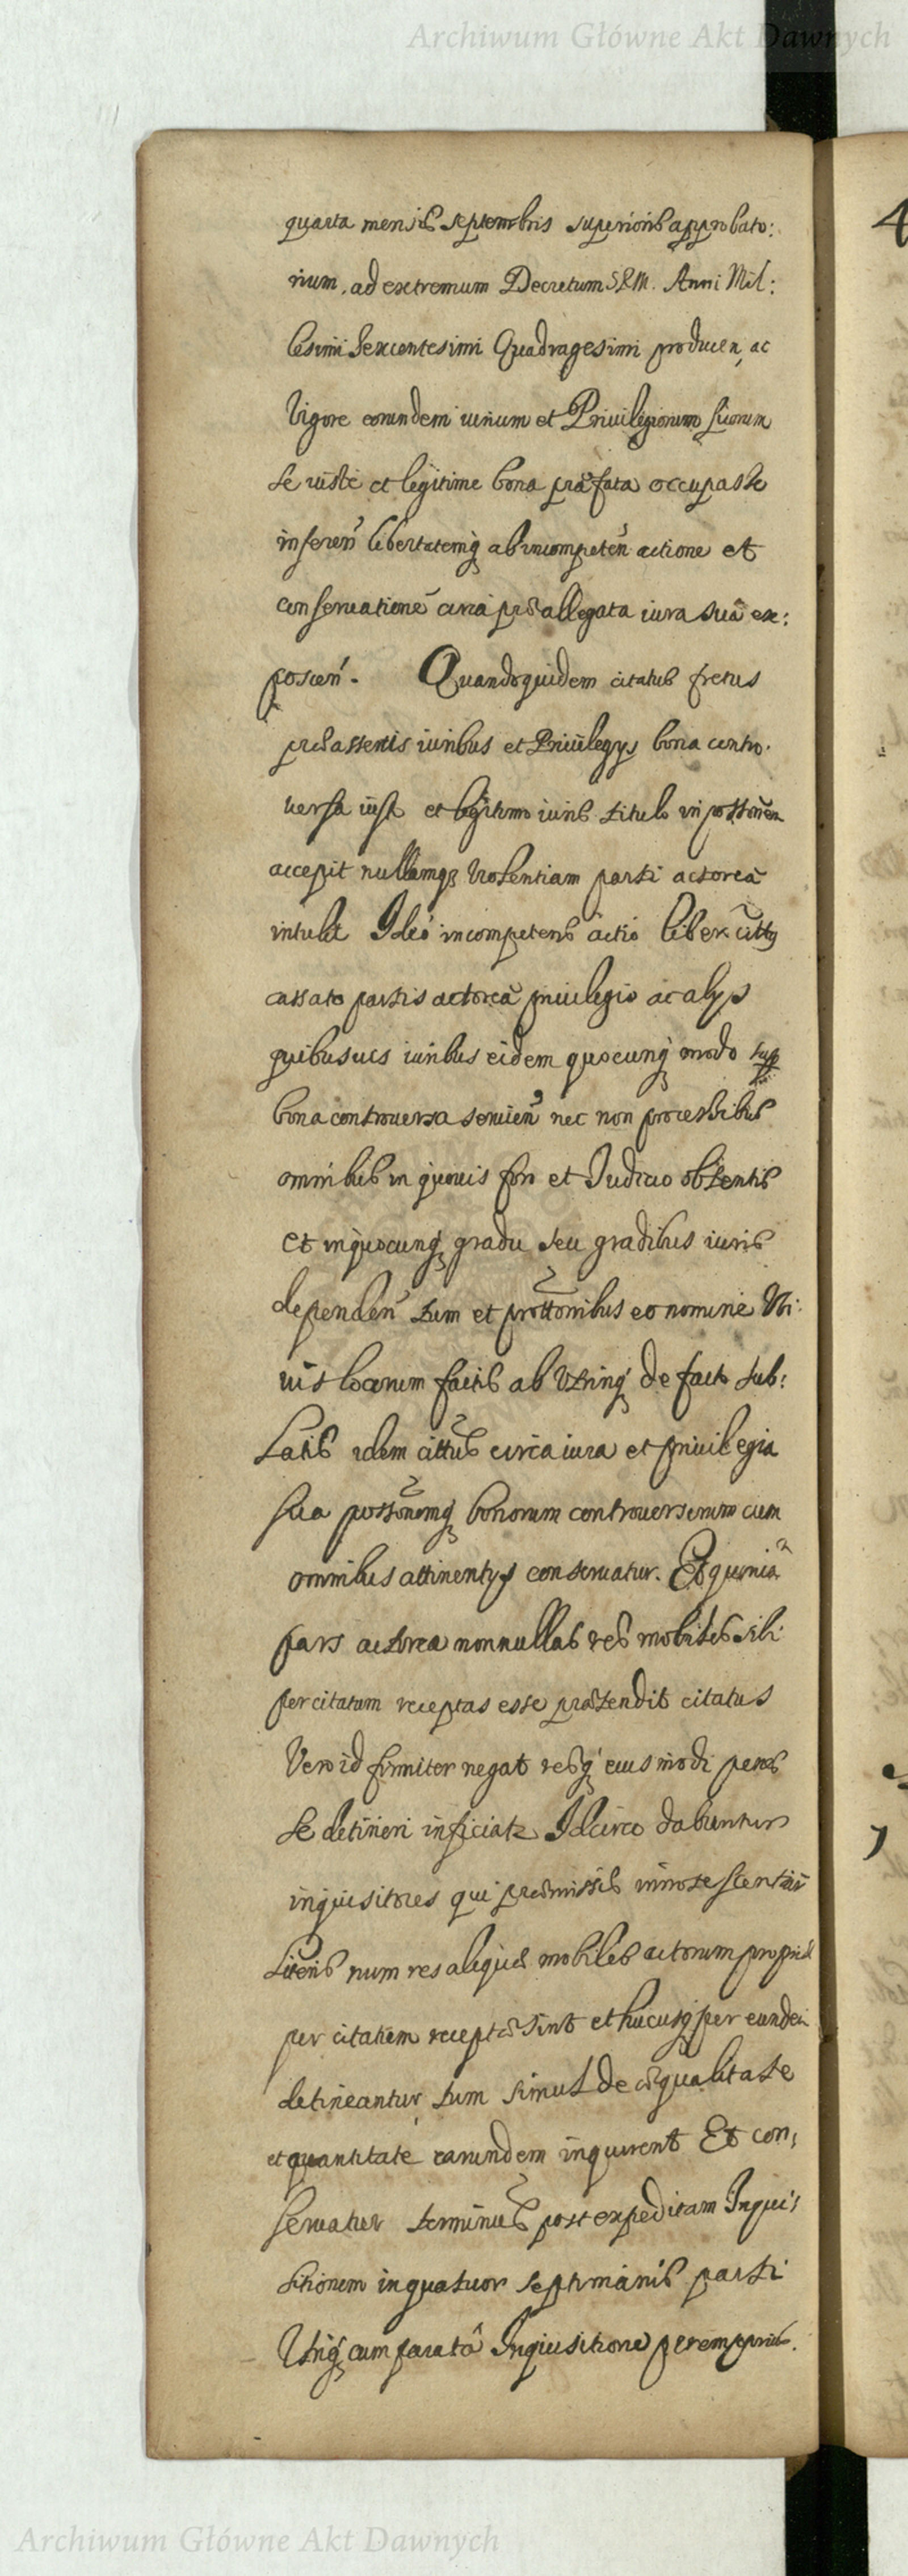 Archiwum Główne Akt Dawnych
quarta mensis Septembris superioris approbato:
rium, ad extremum Decretum S R M. Anni Mil:
lesimi Sexcentesimi Quadragesimi producen, ac
Vigore eorundem iurium et Privilegiorum suorum
se iuste et legitime bona præfata occupasse
inferen libertatemq ab incompeten actione et
conservatione circa præallegata iura sua ex:
poscen. Quandoquidem citatus fretus
præassertis iuribus et Privilegys bona contro:
versa iuste et legitimo iuris titulo in possonem
accepit nullamq violentiam parti actorea
intulit Ideo incompetens actio liber citty
cassato partis actoreæ privilegio ac alys
quibusvis iuribus eidem quocunq modo sup
bona controversa servien nec non processibus
omnibus in quovis foro et Judicio obtentis
et in quocunq gradu seu gradibus iuris
dependen tum et prottonibus eo nomine Vbi:
vis locorum factis ab Utrinq de facto sub:
latis idem cittus circa iura et privilegia
sua possonemq bonorum controversorum cum
omnibus attinentys conservatur. Et quonia
pars actorea nonnullas res mobiles sibi
per citatum receptas esse prætendit citatus
Vero id firmiter negat resq eius modi penes
se detineri inficiatr Idcirco dabuntur
inquisitores qui præmissis innotescentiis
Literis num res aliquæ mobiles actorum propriæ
per citatum receptæ sint et hucusq per eundem
detineantur tum simul de æqualitate
et quantitate earundem inquirent Et con:
servatur terminus post expeditam Inqui:
sitionem in quatuor septimanis parti
Utriq cum parata Inquisitione peremptorius.
Archiwum Główne Akt Dawnych